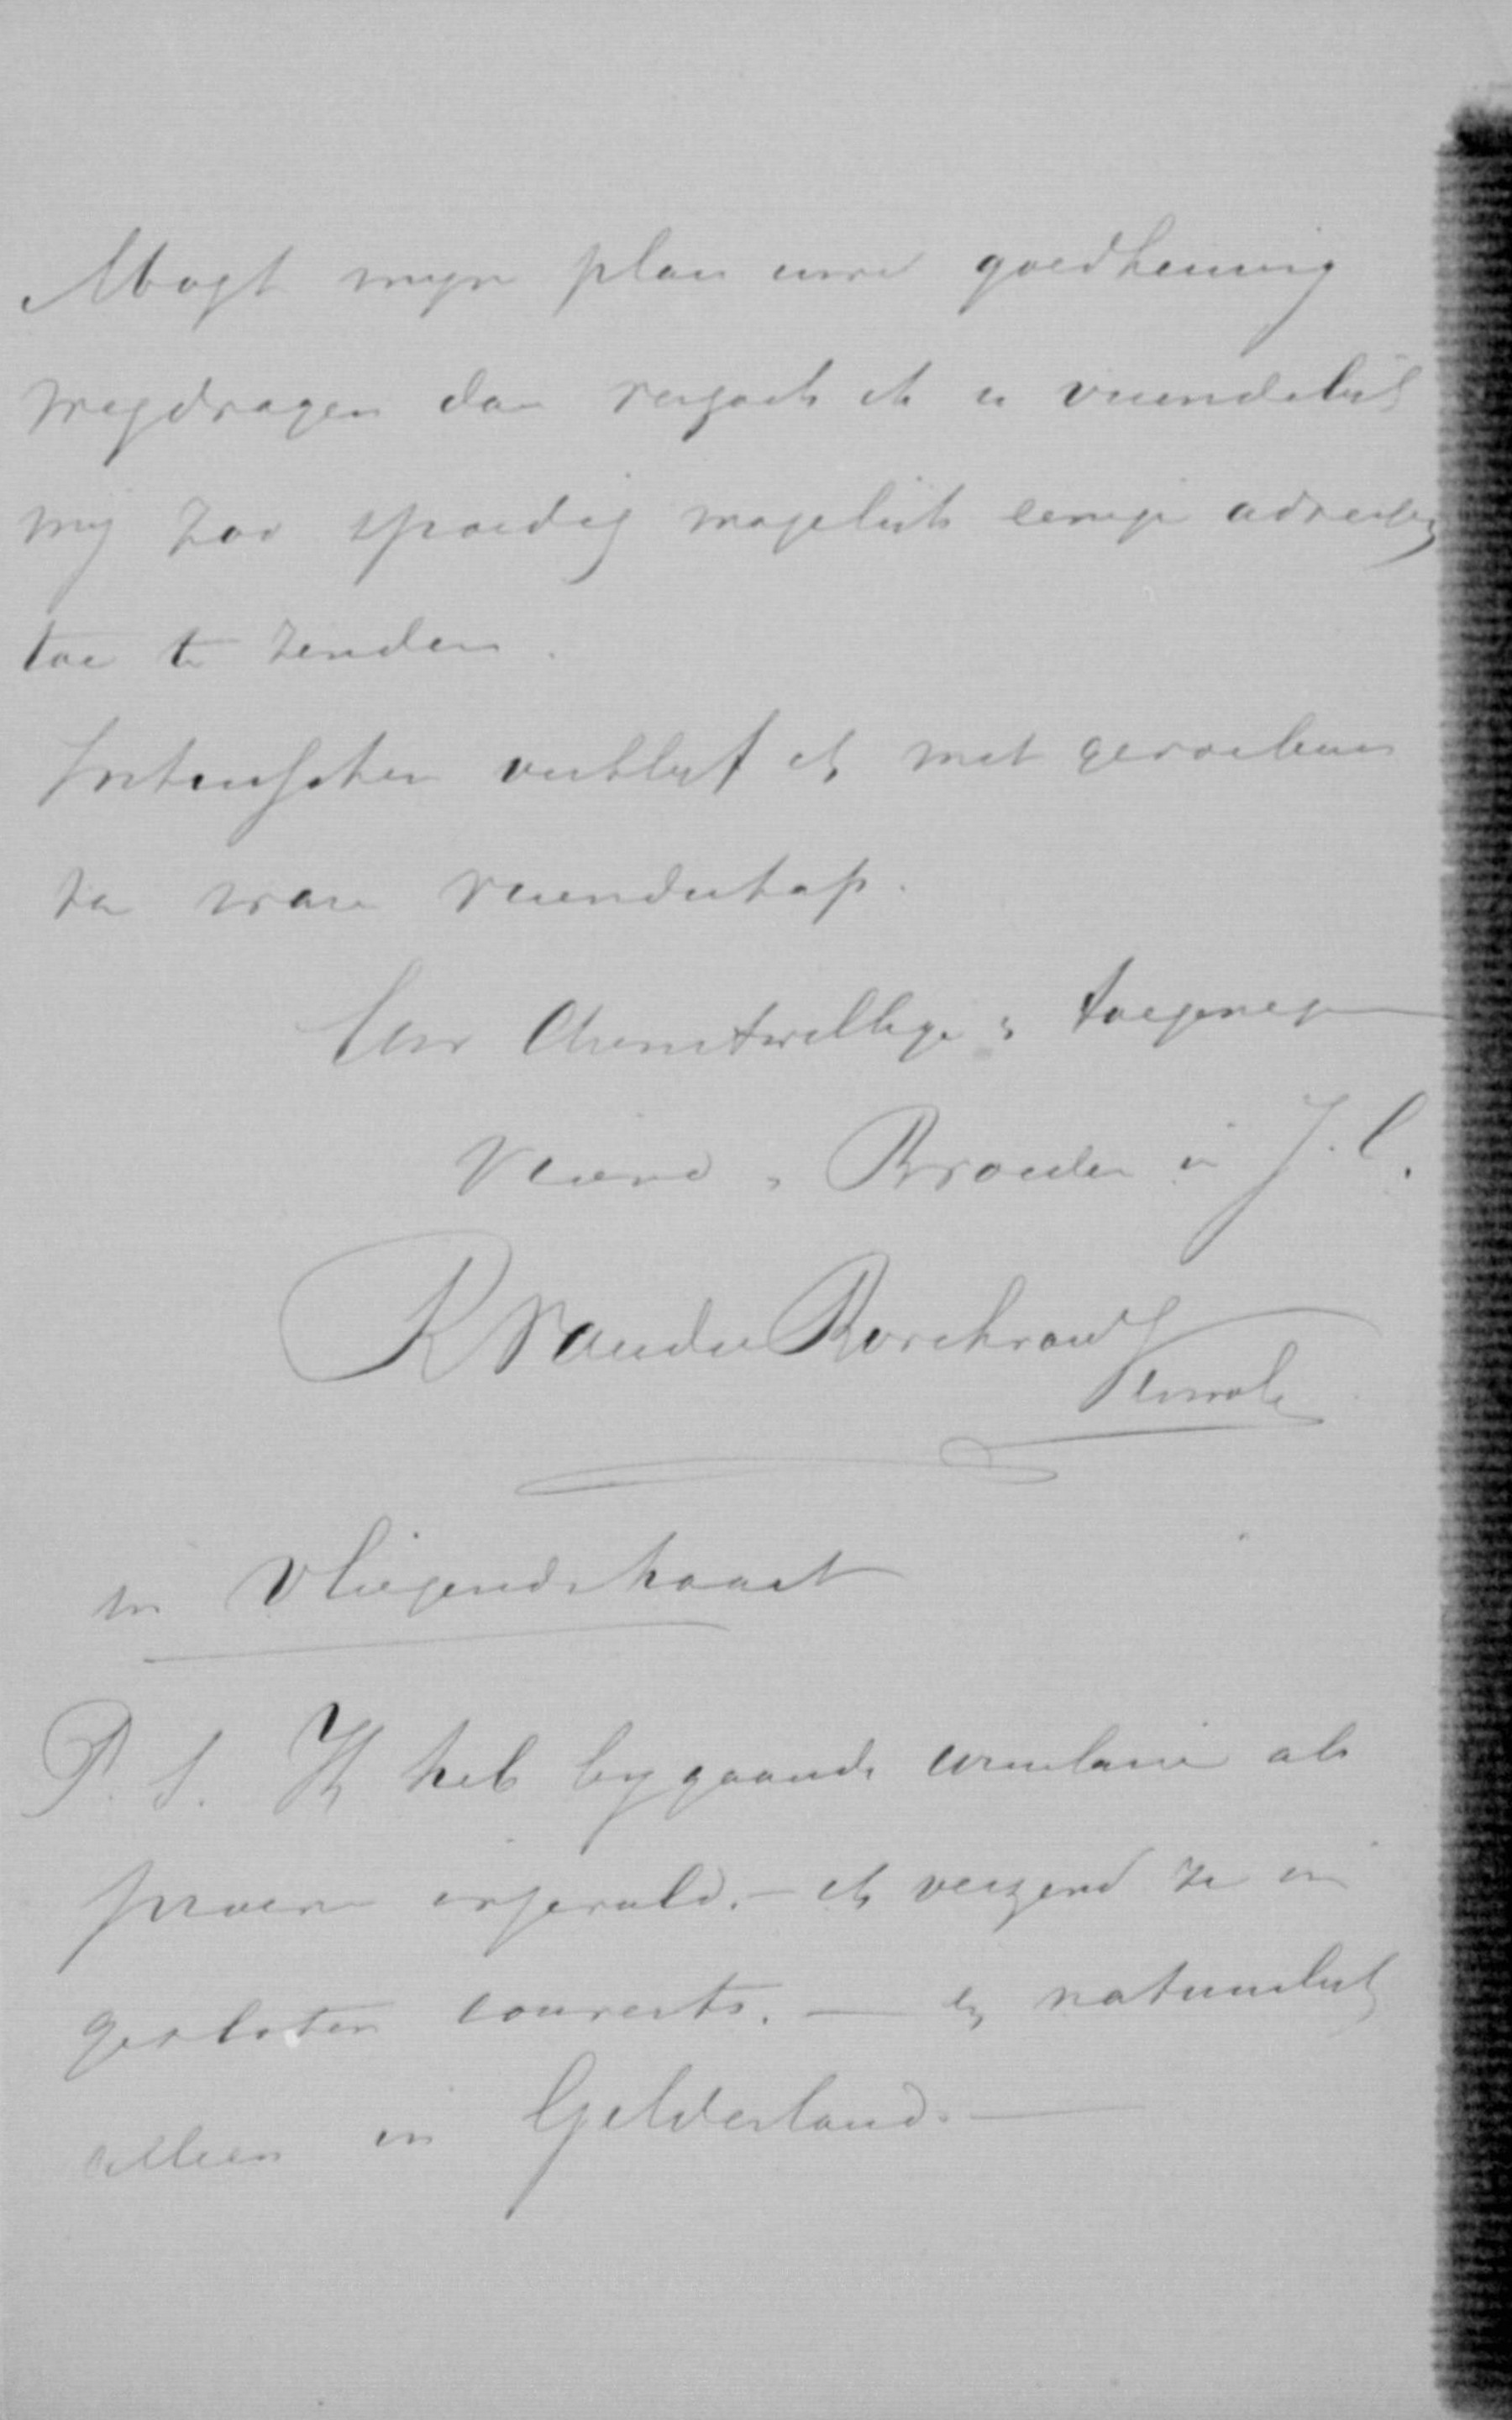 Mogt mijn plan uwe goedkeuring
wegdragen dan verzoek ik u vriendelijk
mij zoo spoedig mogelijk eenige adressen
toe te zenden.
Intusschen verblijf ik met gevoelens
van ware vriendschap.
Uw dienstwillige & toegenegen
Vriend & Broeder in J. C.
R van der
in Vliegende haast
P. S. Ik heb bijgaande circulaire als
proeve ingevuld. — ik verzend ze in
gesloten couverts. — en natuurlijk
alleen in Gelderland. —